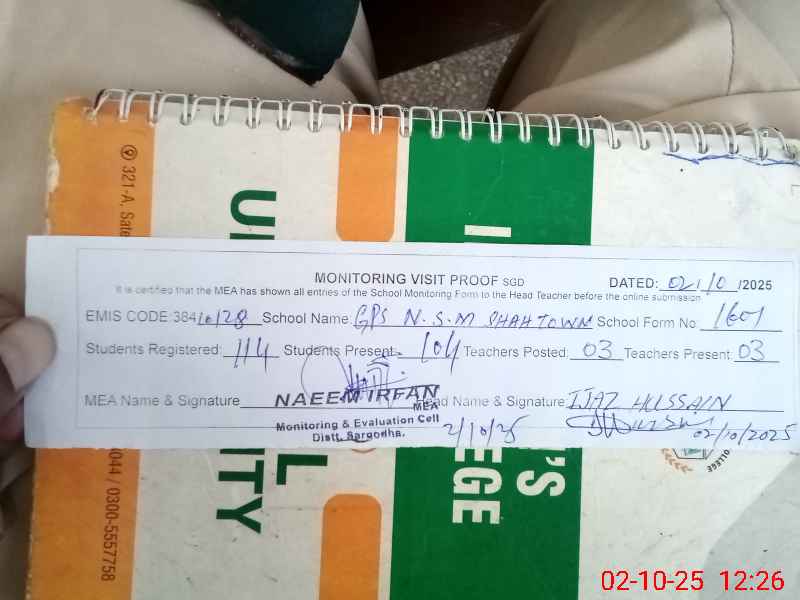 MONITORING VISIT PROOF SGD DATED: 02/10/2025
It is certified that the MEA has shown all entries of the School Monitoring Form to the Head Teacher before the online submission
EMIS CODE:38410128 School Name: GPS N.S.M SHAH TOWN School Form No: 1601
Students Registered: 114 Students Present: 104 Teachers Posted: 03 Teachers Present: 03
MEA Name & Signature NAEEM IRFAN Head Name & Signature: IJAZ HUSSAIN
MEA
Monitoring & Evaluation Cell
Distt. Sargodha.
2/10/25
02/10/2025
321-A, Sate
044 / 0300-5557758
COLLEGE
'S
EGE
L
ITY
02-10-25 12:26